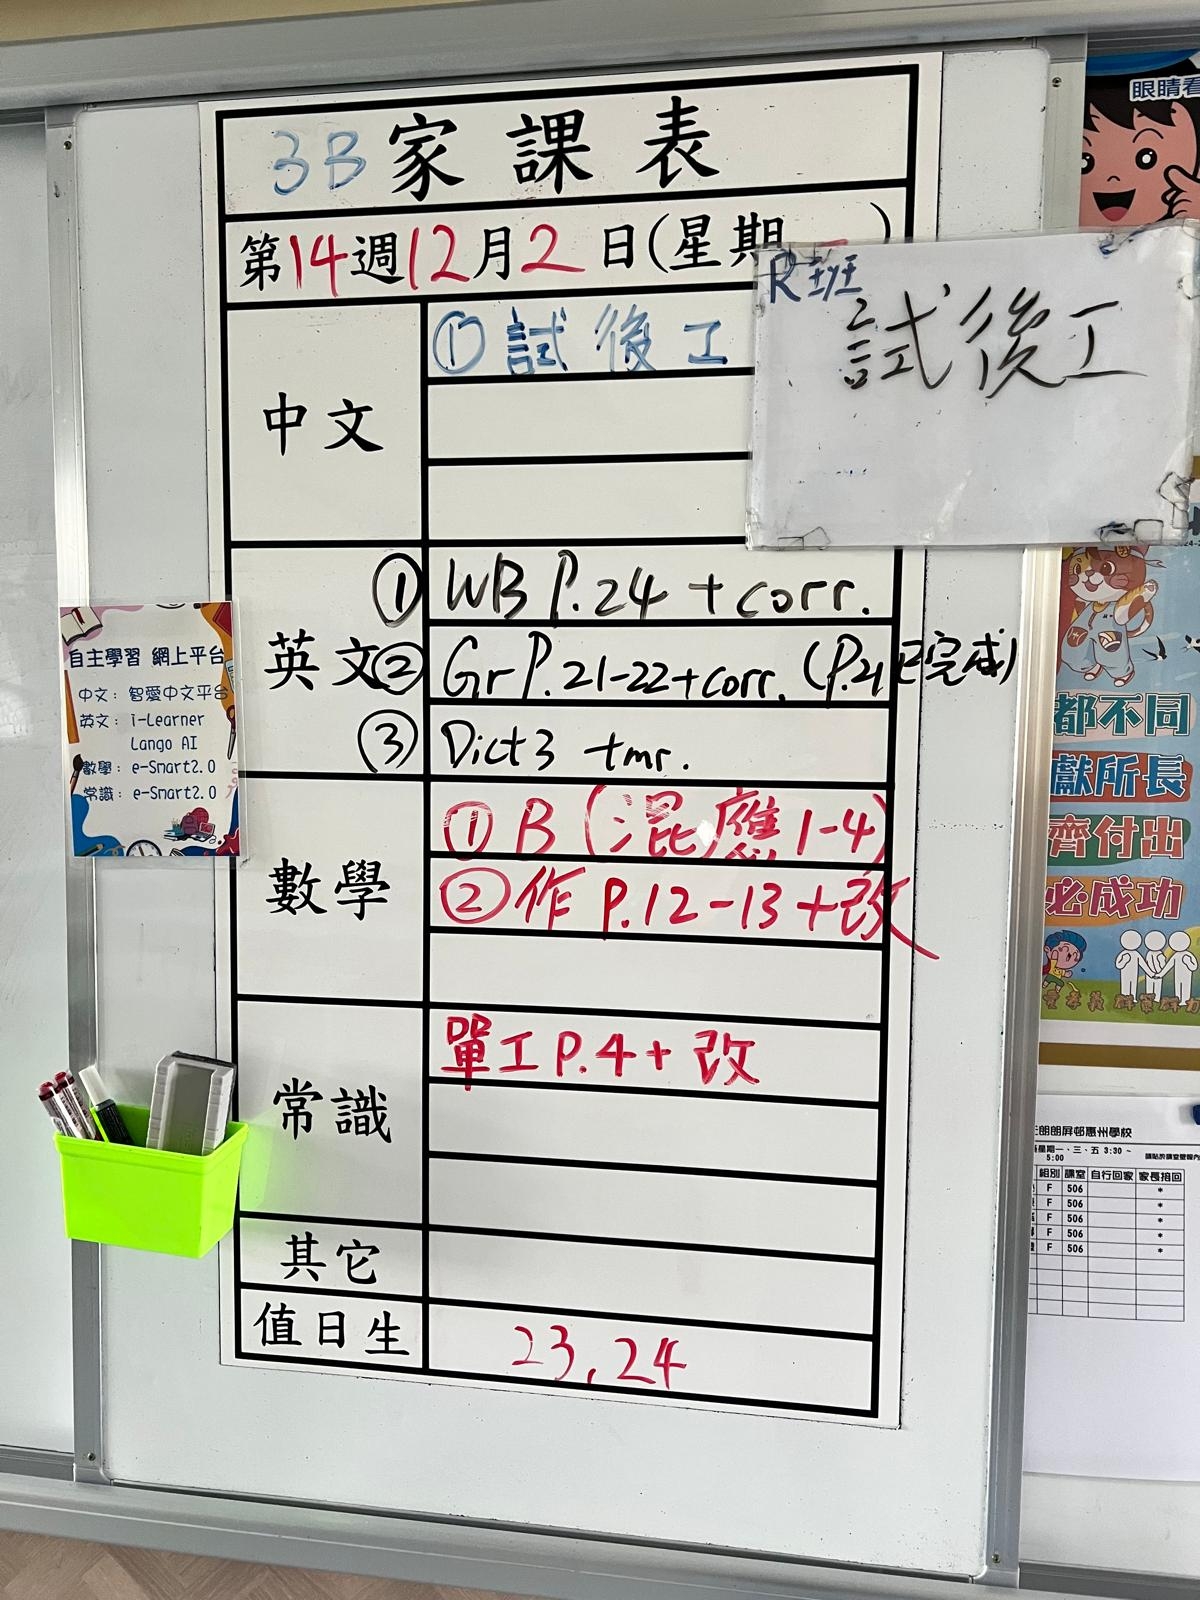 3B 家課表
第14週12月2日(星期一)
R班
試後工
中文
① 試後工
英文
① WB P.24 + corr.
② Gr P.21-22+corr. (P.21已完成)
③ Dict3 tmr.
數學
① B (混應1-4)
② 作 P.12-13+改
常識
單工P.4+改
其它
值日生
23,24
自主學習 網上平台
中文：智愛中文平台
英文：i-Learner
Lango AI
數學：e-Smart2.0
常識：e-Smart2.0
眼睛看
都不同
獻所長
齊付出
必成功
朗屏邨惠州學校
星期一、三、五 3:30 ~
5:00
組別 課室 自行回家 家長接回
F 506 *
F 506 *
F 506 *
F 506 *
F 506 *